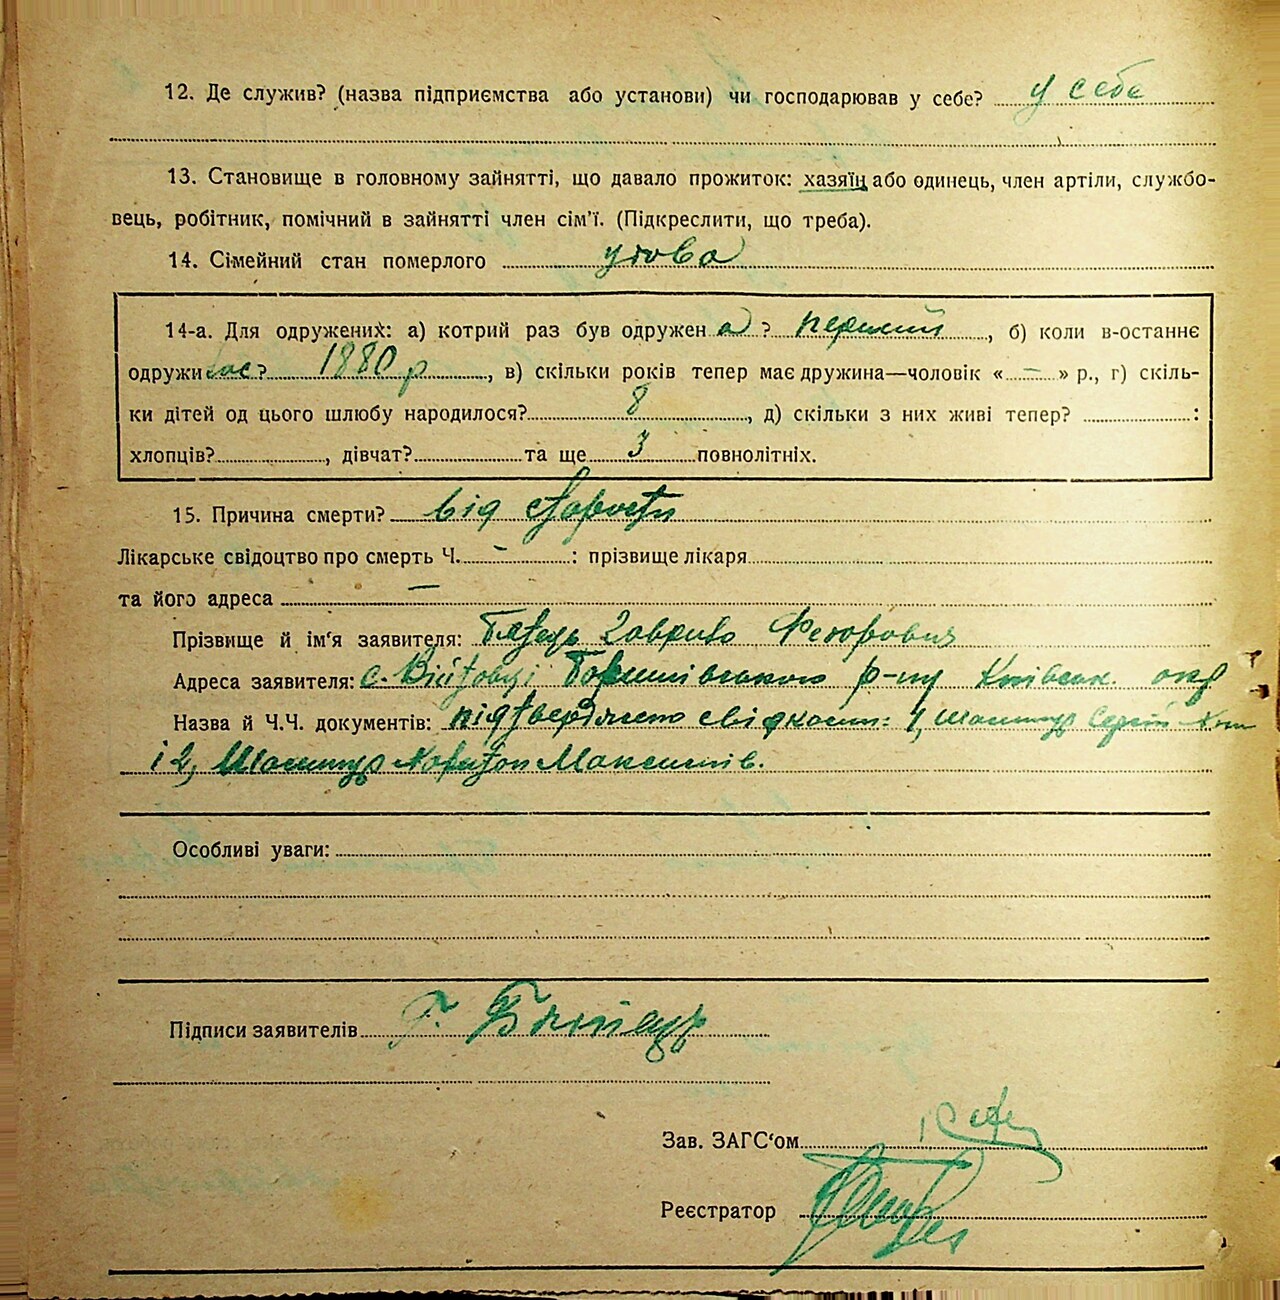 12. Де служив? (назва підприємства або установи) чи господарював у себе? у себе
13. Становище в головному зайнятті, що давало прожиток: хазяїн або одинець, член артіли, службо-
вець, робітник, помічний в зайнятті член сім'ї. (Підкреслити, що треба).
14. Сімейний стан померлого удова
14-а. Для одружених: а) котрий раз був одружен а? перший, б) коли в-останнє
одружилас? 1880 р, в) скільки років тепер має дружина—чоловік «–» р., г) скіль-
ки дітей од цього шлюбу народилося? 8, д) скільки з них живі тепер? :
хлопців?, дівчат? та ще 3 повнолітніх.
15. Причина смерти? від старости
Лікарське свідоцтво про смерть Ч. – : прізвище лікаря
та його адреса –
Прізвище й ім'я заявителя: Гаврило Федорович
Адреса заявителя: с. Війтовці р-ну Київськ. окр
Назва й Ч.Ч. документів: підтверджено свідками: 1, Сергій
і 2, Харитон Максимів.
Особливі уваги:
Підписи заявителів Г.
Зав. ЗАГС'ом
Реєстратор